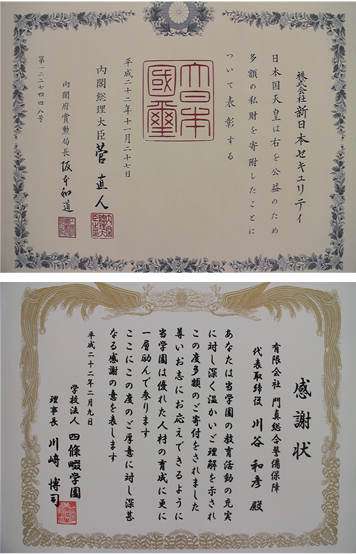 株式会社 新日本セキュリティ
日本国天皇は右を公益のため
多額の私財を寄附したことに
ついて表彰する
大日本國璽
平成二十二年十一月二十七日
内閣総理大臣 菅 直人
内閣府賞勲局長
第一二二七四四八号
感謝状
有限会社 門真総合警備保障
代表取締役 川谷 和彦 殿
あなたは当学園の教育活動の充実
に対し深く温かいご理解を示され
この度多額のご寄付をされました
尊いお志にお応えできるように
当学園は優れた人材の育成に更に
一層励んで参ります
ここにこの度のご厚意に対し深甚
なる感謝の意を表します
平成二十二年二月九日
学校法人 四條畷学園
理事長 川﨑 博司